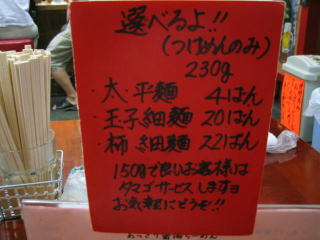 選べるよ!!
(つけめんのみ)
230g
・太・平麺 4ばん
・玉子細麺 20ばん
・柿細麺 22ばん
150gで良いお客様は
タマゴサービスしますヨ
お気軽にどうぞ!!